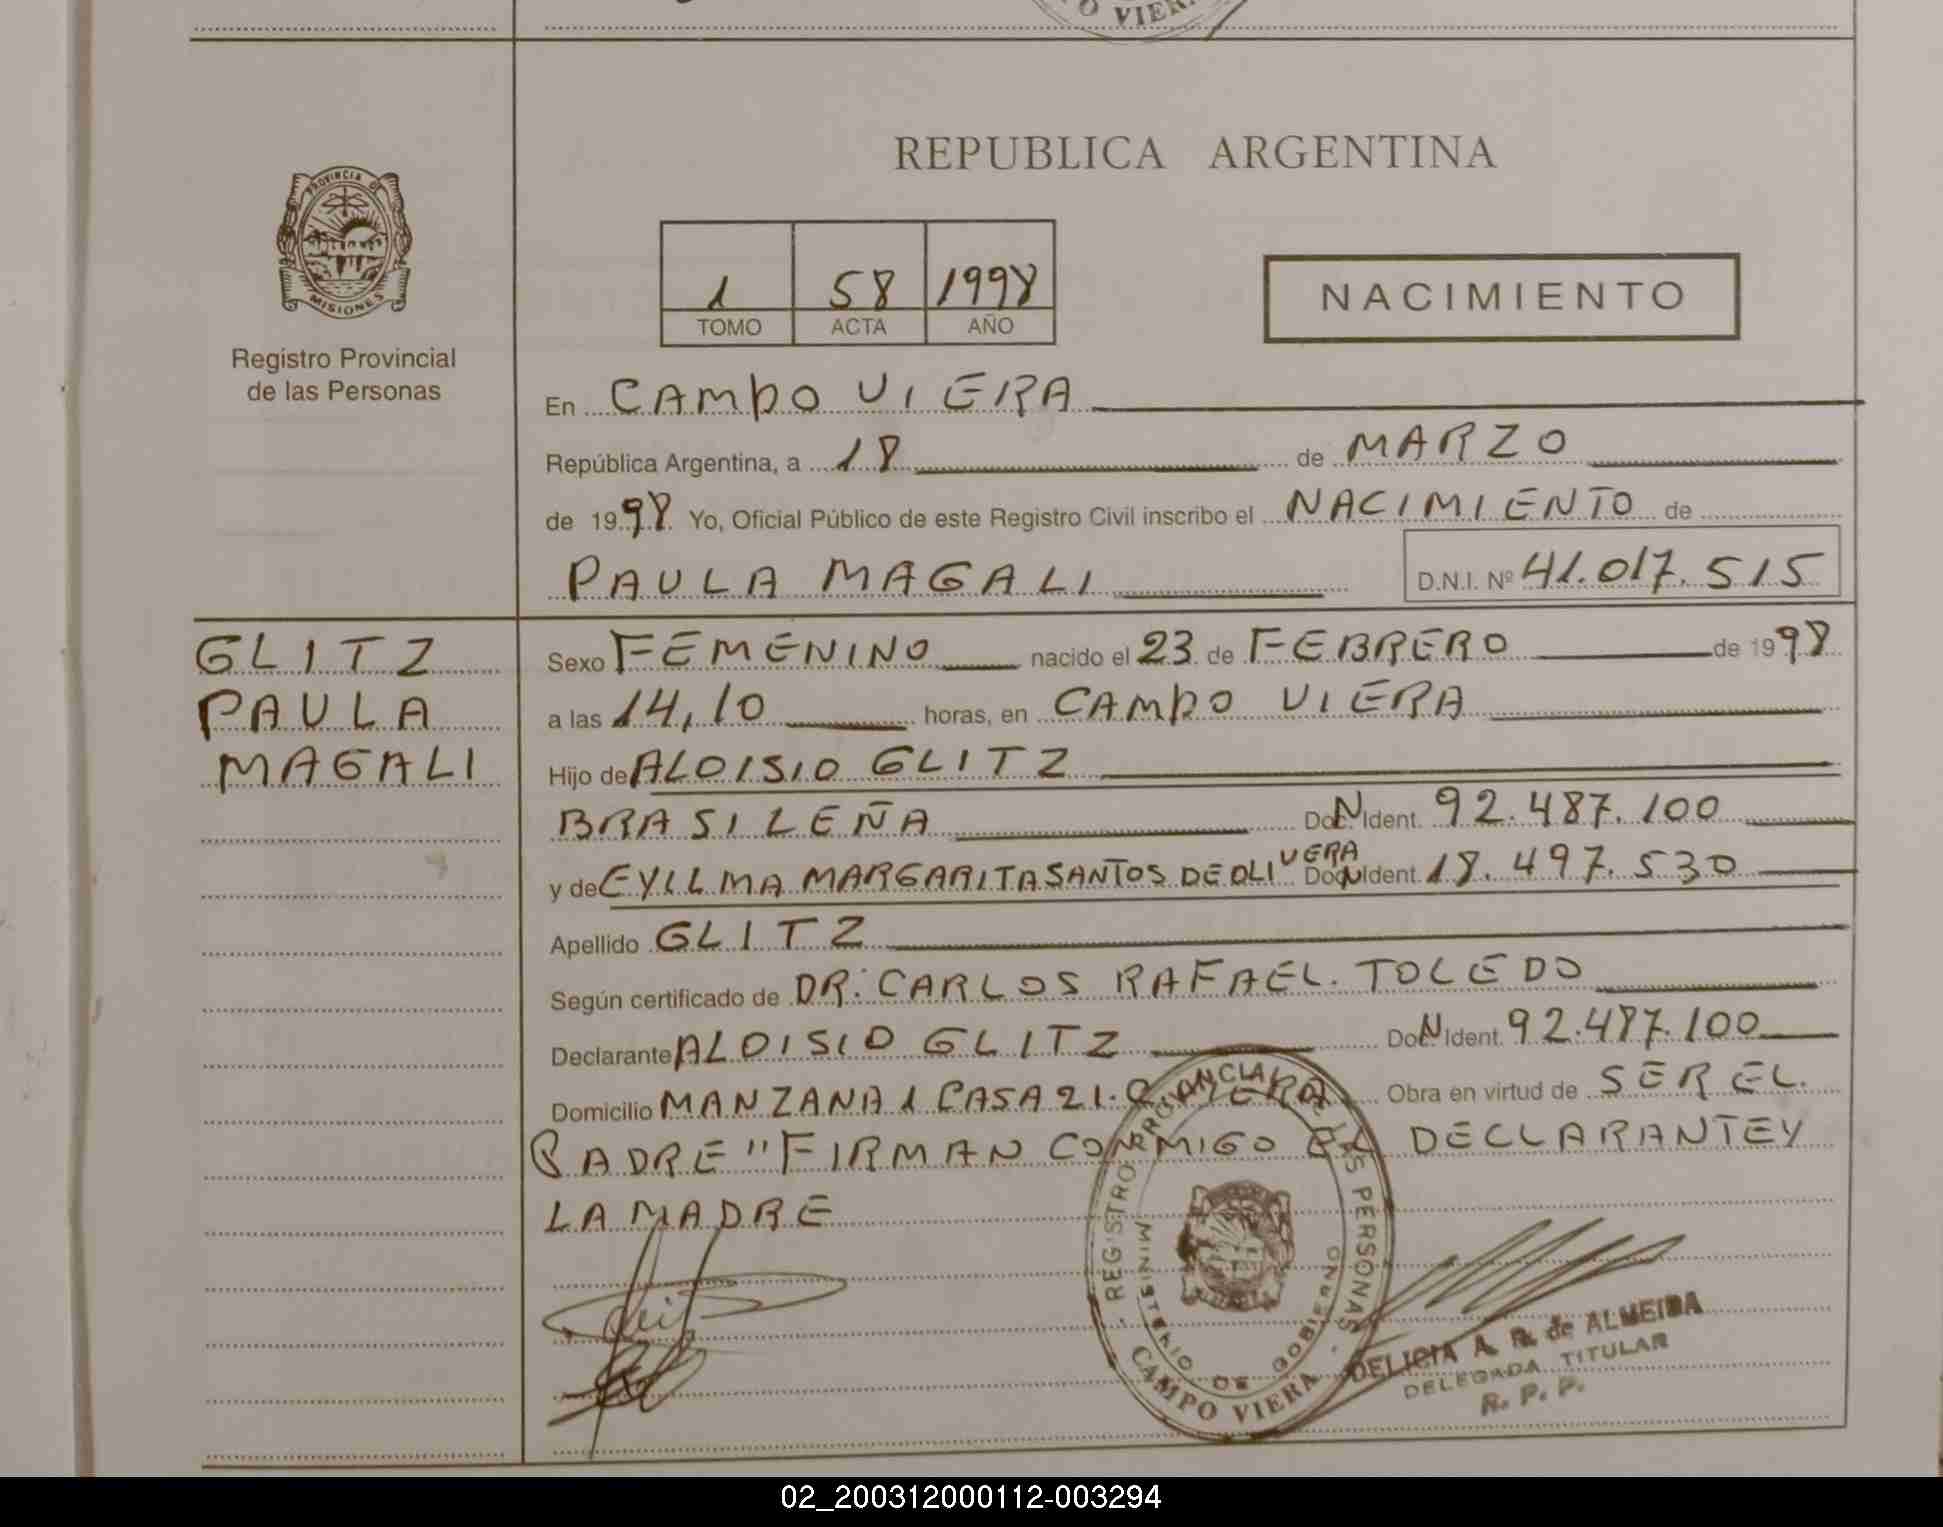 PO VIERA
REPUBLICA ARGENTINA
PROVINCIA DE
MISIONES
Registro Provincial
de las Personas
1 58 1998
TOMO ACTA AÑO
NACIMIENTO
En CAMPO VIERA
República Argentina, a 18 de MARZO
de 1998 Yo, Oficial Público de este Registro Civil inscribo el NACIMIENTO de
PAULA MAGALI D.N.I. Nº 41.017.515
GLITZ
PAULA
MAGALI
Sexo FEMENINO nacido el 23 de FEBRERO de 1998
a las 14,10 horas, en CAMPO VIERA
Hijo de ALOISIO GLITZ
BRASILEÑA Doc. N Ident. 92.487.100
y de EYILMA MARGARITA SANTOS DE OLIVERA Doc. N Ident. 18.497.530
Apellido GLITZ
Según certificado de DR: CARLOS RAFAEL. TOLEDO
Declarante ALOISIO GLITZ Doc. N Ident. 92.487.100
Domicilio MANZANA 1 CASA 21. VIERA Obra en virtud de SER EL.
PADRE "FIRMAN CONMIGO EL DECLARANTE Y
LA MADRE
REGISTRO PROVINCIAL DE LAS PERSONAS
MINISTERIO DE GOBIERNO
CAMPO VIERA
DELICIA A. R. de ALMEIDA
DELEGADA TITULAR
R. P. P.
02_200312000112-003294